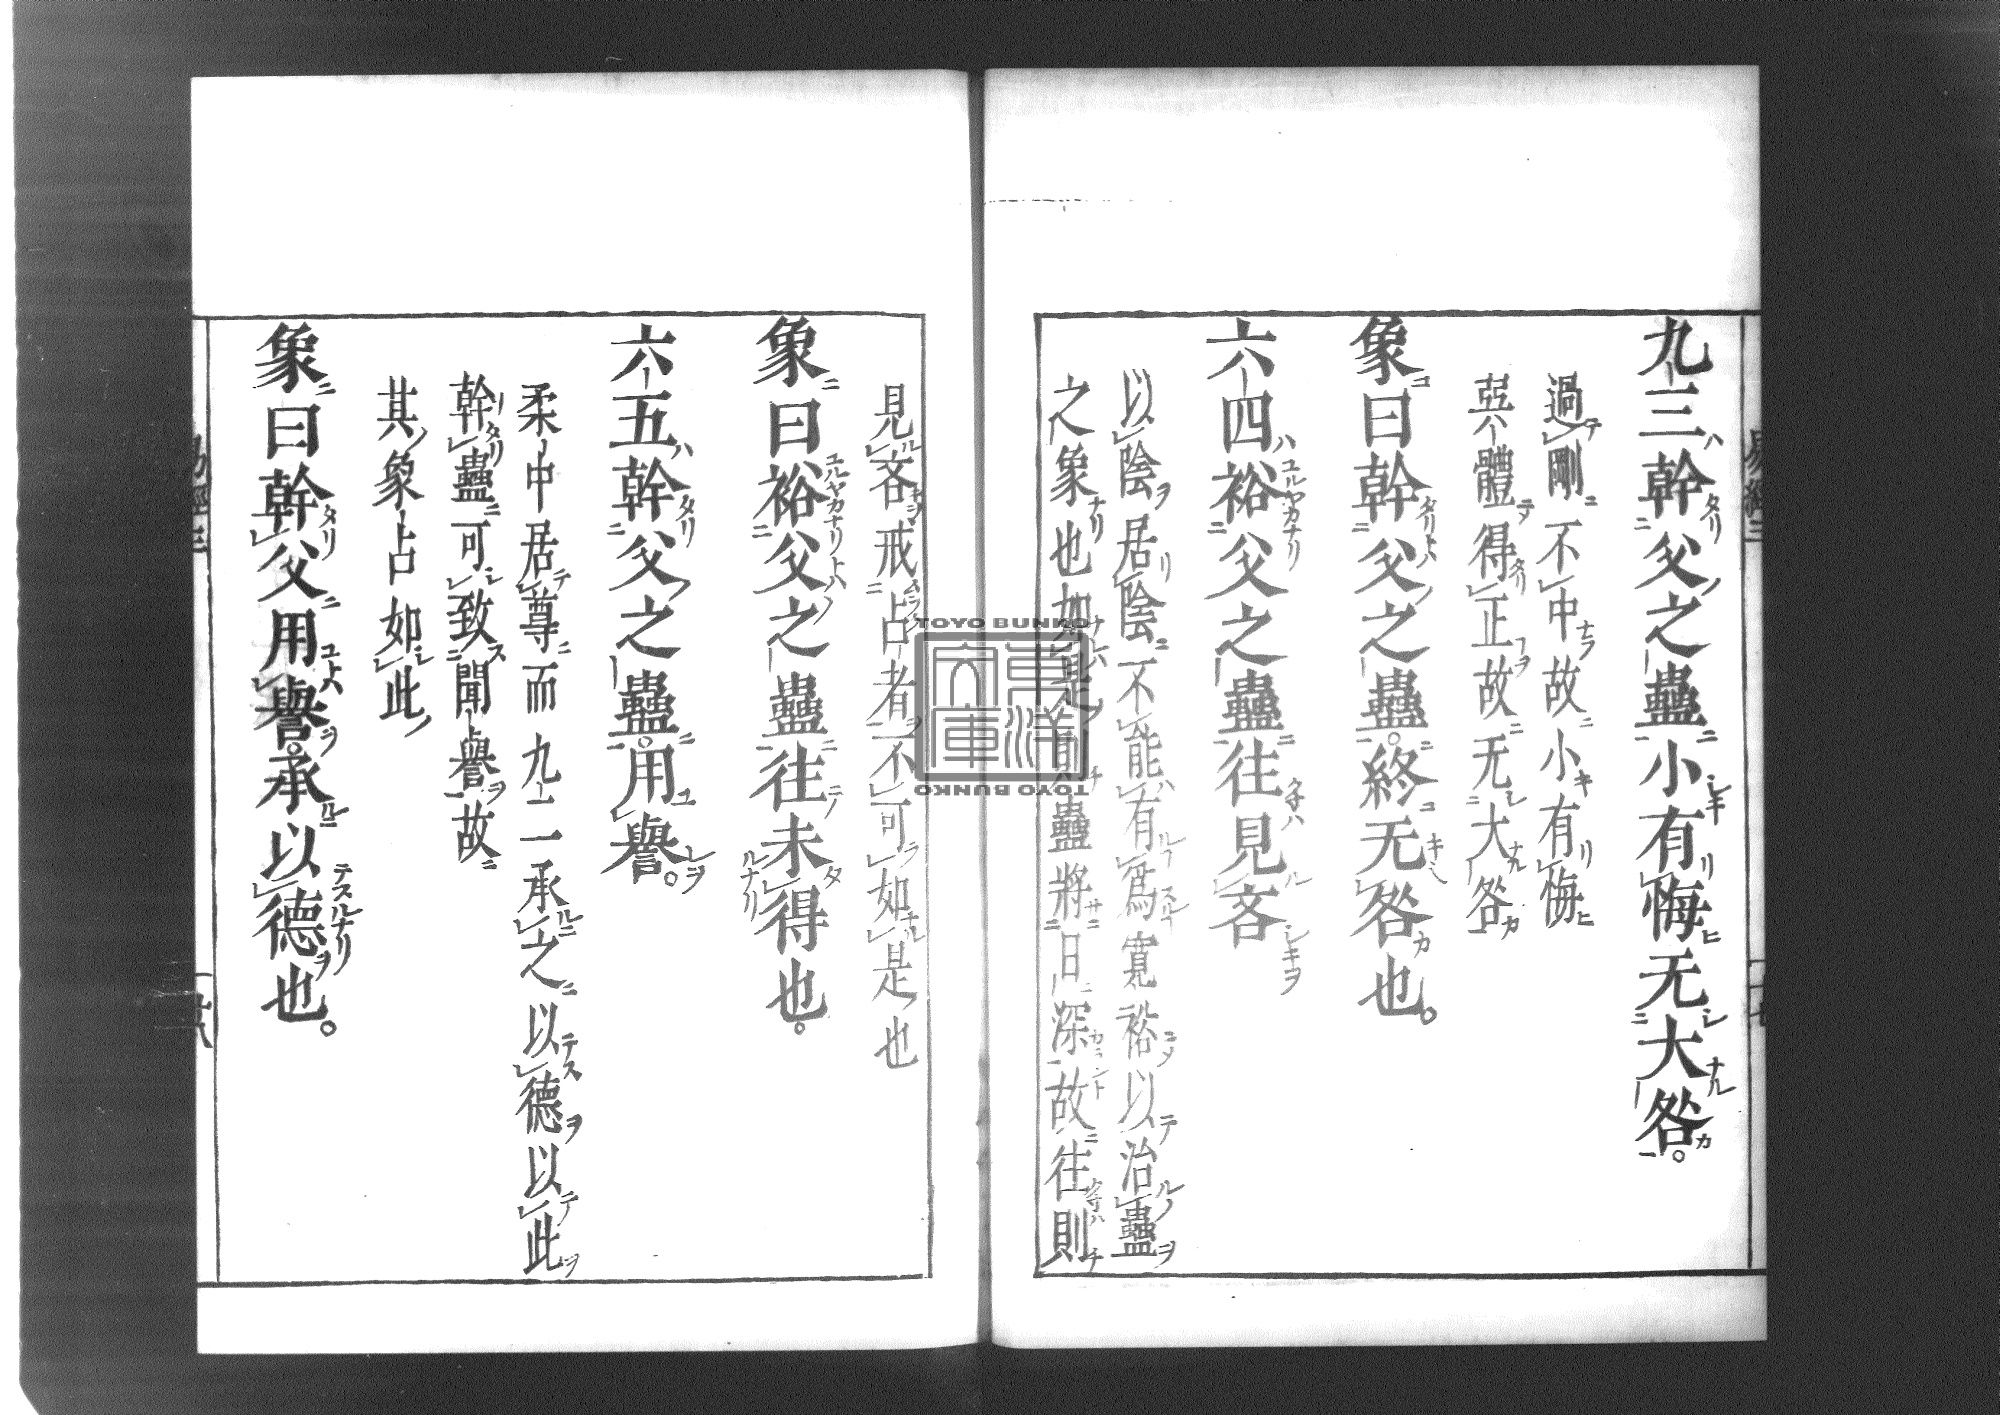 九三幹父之蠱小有悔无大咎。
過剛不中故小有悔
巽體得正故无大咎
象曰幹父之蠱。終无咎也。
六四裕父之蠱往見吝
以陰居陰不能有爲寬裕以治蠱
之象也如是則蠱將日深故往則
見吝戒占者不可如是也
象曰裕父之蠱往未得也。
六五幹父之蠱。用譽。
柔中居尊而九二承之以德以此
幹蠱可致聞譽故
其象占如此
象曰幹父用譽。承以德也。
TOYO BUNKO
東洋文庫
TOYO BUNKO